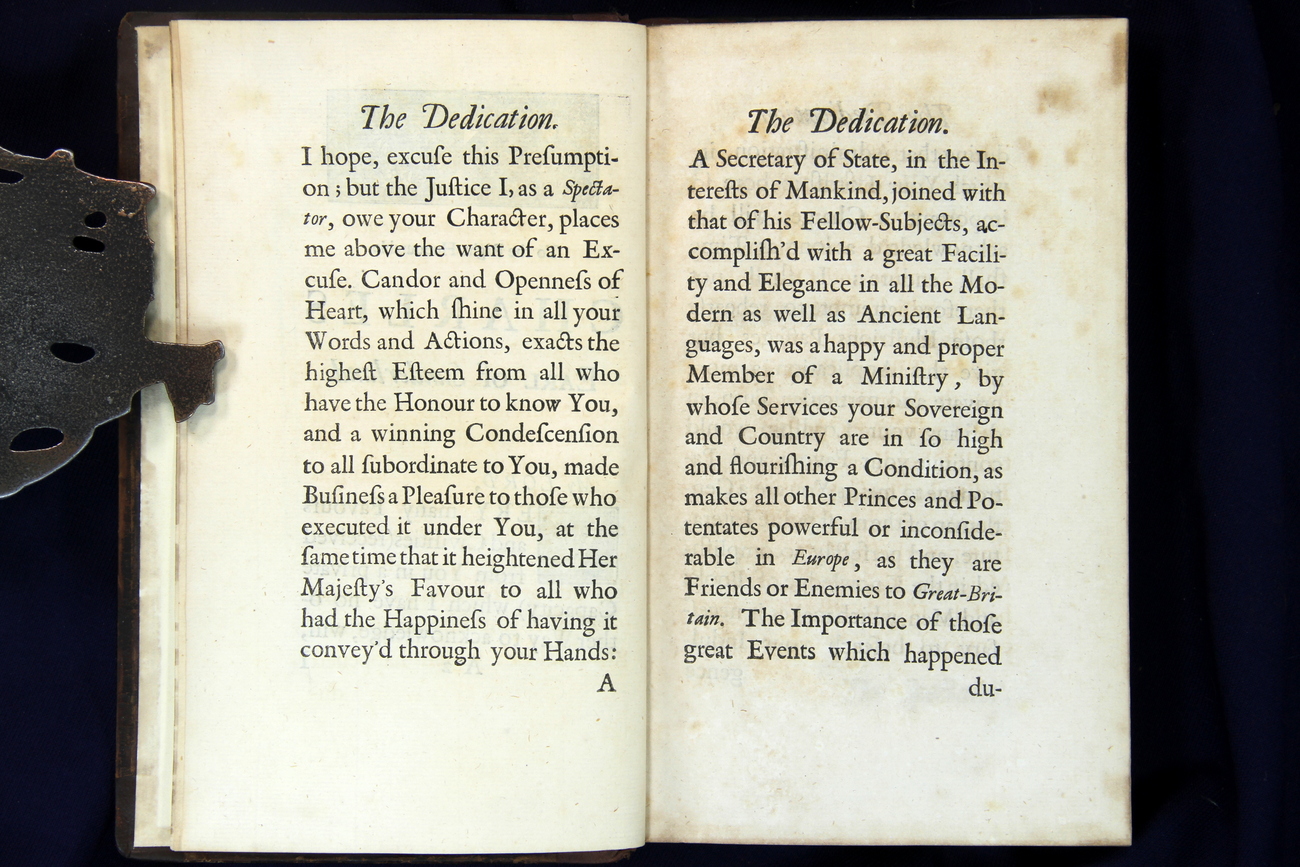 The Dedication.
I hope, excuſe this Preſumpti-
on; but the Juſtice I, as a Specta-
tor, owe your Character, places
me above the want of an Ex-
cuſe. Candor and Openneſs of
Heart, which ſhine in all your
Words and Actions, exacts the
higheſt Eſteem from all who
have the Honour to know You,
and a winning Condeſcenſion
to all ſubordinate to You, made
Buſineſs a Pleaſure to thoſe who
executed it under You, at the
ſame time that it heightened Her
Majeſty's Favour to all who
had the Happineſs of having it
convey'd through your Hands:
A
The Dedication.
A Secretary of State, in the In-
tereſts of Mankind, joined with
that of his Fellow-Subjects, ac-
compliſh'd with a great Facili-
ty and Elegance in all the Mo-
dern as well as Ancient Lan-
guages, was a happy and proper
Member of a Miniſtry, by
whoſe Services your Sovereign
and Country are in ſo high
and flouriſhing a Condition, as
makes all other Princes and Po-
tentates powerful or inconſide-
rable in Europe, as they are
Friends or Enemies to Great-Bri-
tain. The Importance of thoſe
great Events which happened
du-